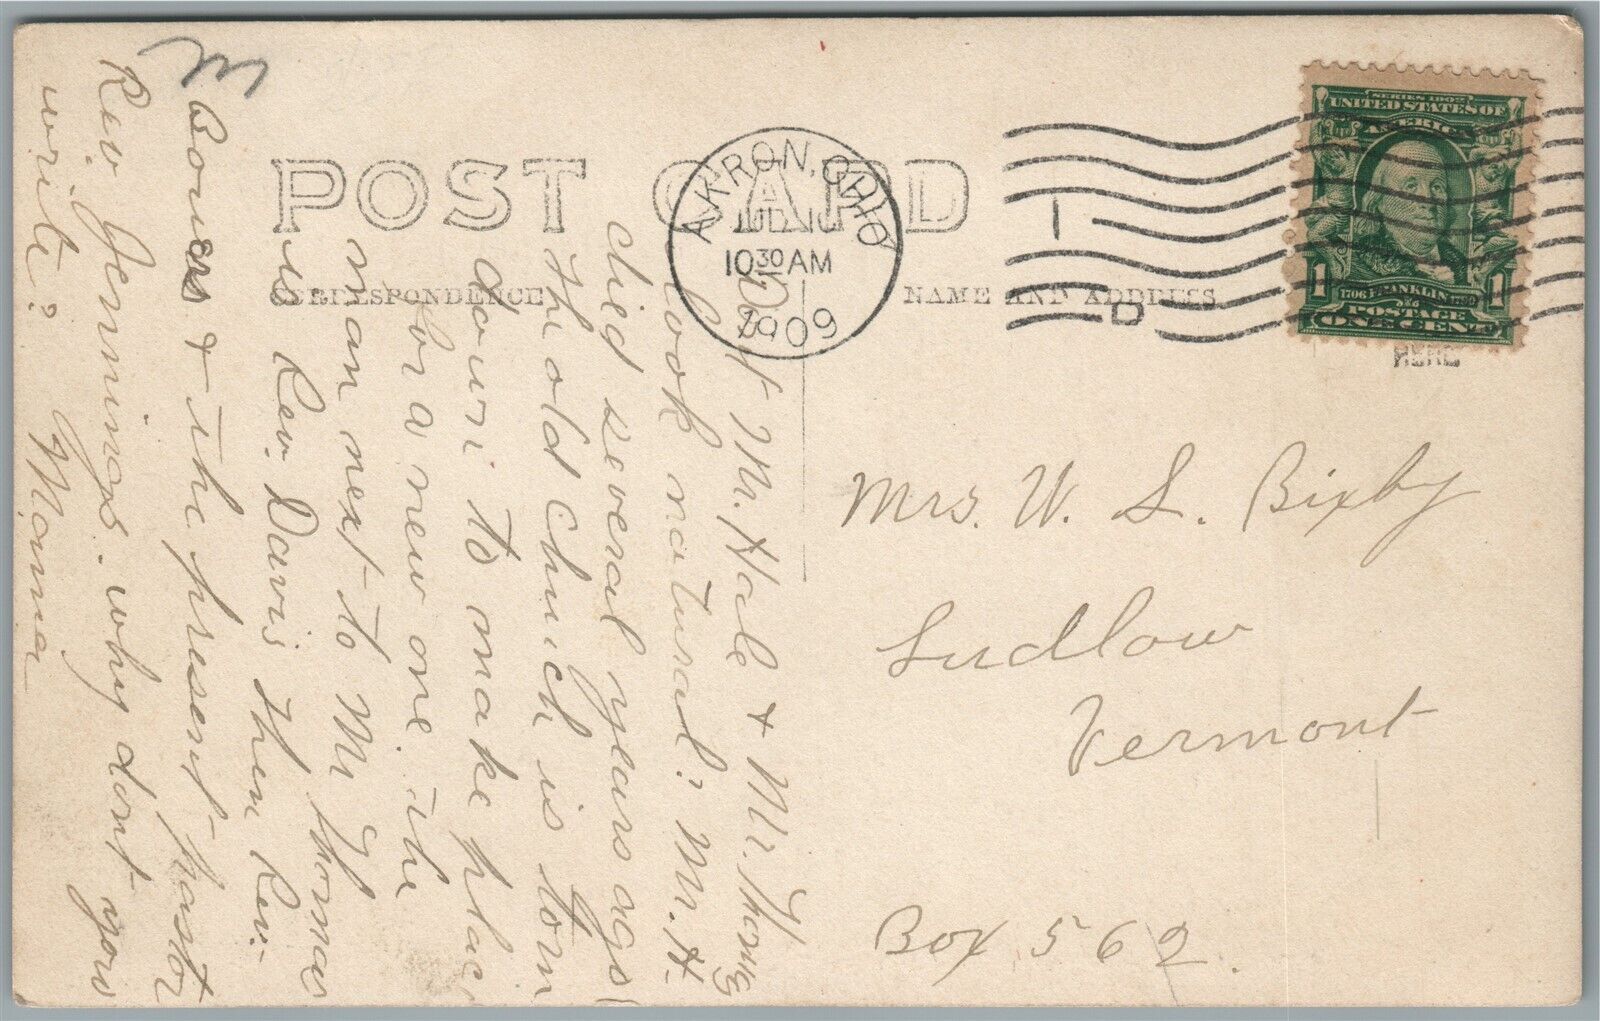 POST CARD
CORRESPONDENCE
NAME AND ADDRESS
HERE
AKRON, OHIO
JUL
10 30 AM
1909
1
D
SERIES 1902
UNITED STATES OF
AMERICA
1706 FRANKLIN 1790
POSTAGE
1 ONE CENT 1
Mrs. W. L. Bixby
Ludlow
Vermont
Box 562.
Dont Mr. Hale & Mr. Thomas
look natural? Mr. H.
died several years ago
the old Chuch is torn
down to make place
for a new one. the
man next to Mr Thomas
is Rev. Davis then Rev.
Bowers & the present pastor
Rev Jennings. why dont you
write? Mama